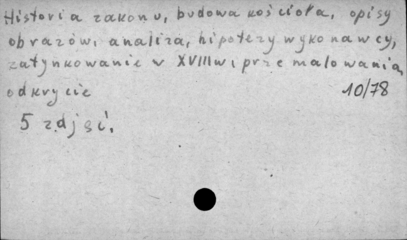 Historia zakonu, budowa kościoła, opisy
obrazów, analiza, hipotezy wykonawcy,
zatynkowanie w XVIIIw, przemalowania,
odkrycie 10/78
5 zdjęć.